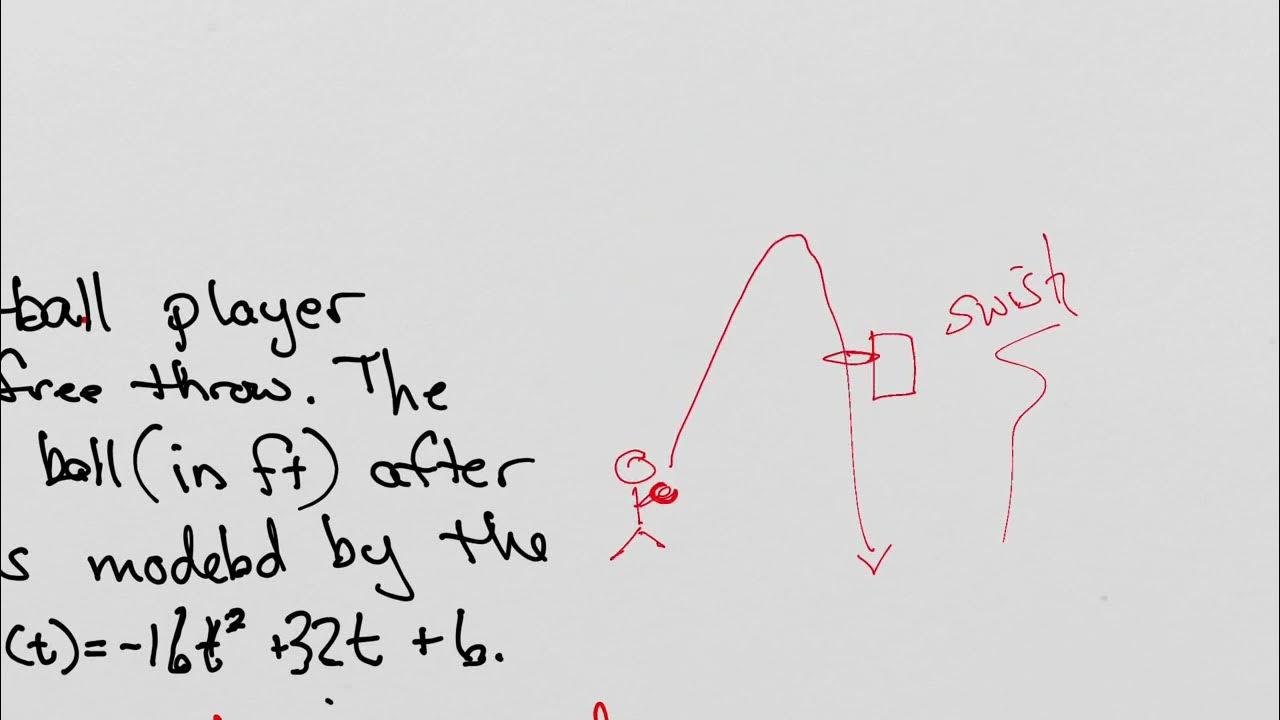 ball player
free throw. The
ball (in ft) after
s modeled by the
(t) = -16t² + 32t + 6.
swish